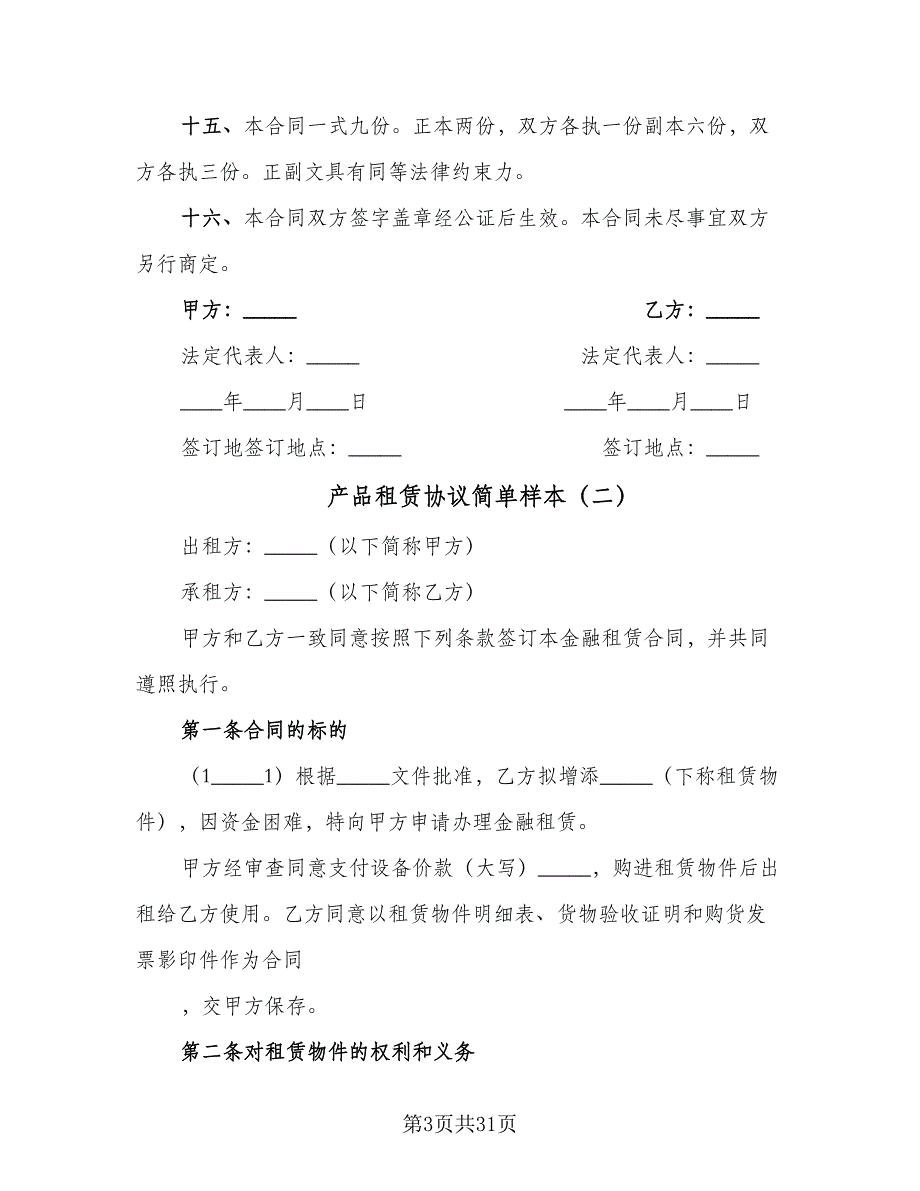 十五、本合同一式九份。正本两份，双方各执一份副本六份，双
方各执三份。正副文具有同等法律约束力。
十六、本合同双方签字盖章经公证后生效。本合同未尽事宜双方
另行商定。
甲方：_____ 乙方：_____
法定代表人：_____ 法定代表人：_____
____年____月____日 ____年____月____日
签订地签订地点：_____ 签订地点：_____
产品租赁协议简单样本（二）
出租方：_____（以下简称甲方）
承租方：_____（以下简称乙方）
甲方和乙方一致同意按照下列条款签订本金融租赁合同，并共同
遵照执行。
第一条合同的标的
（1_____1）根据_____文件批准，乙方拟增添_____（下称租赁物
件），因资金困难，特向甲方申请办理金融租赁。
甲方经审查同意支付设备价款（大写）_____，购进租赁物件后出
租给乙方使用。乙方同意以租赁物件明细表、货物验收证明和购货发
票影印件作为合同
，交甲方保存。
第二条对租赁物件的权利和义务
第3页共31页